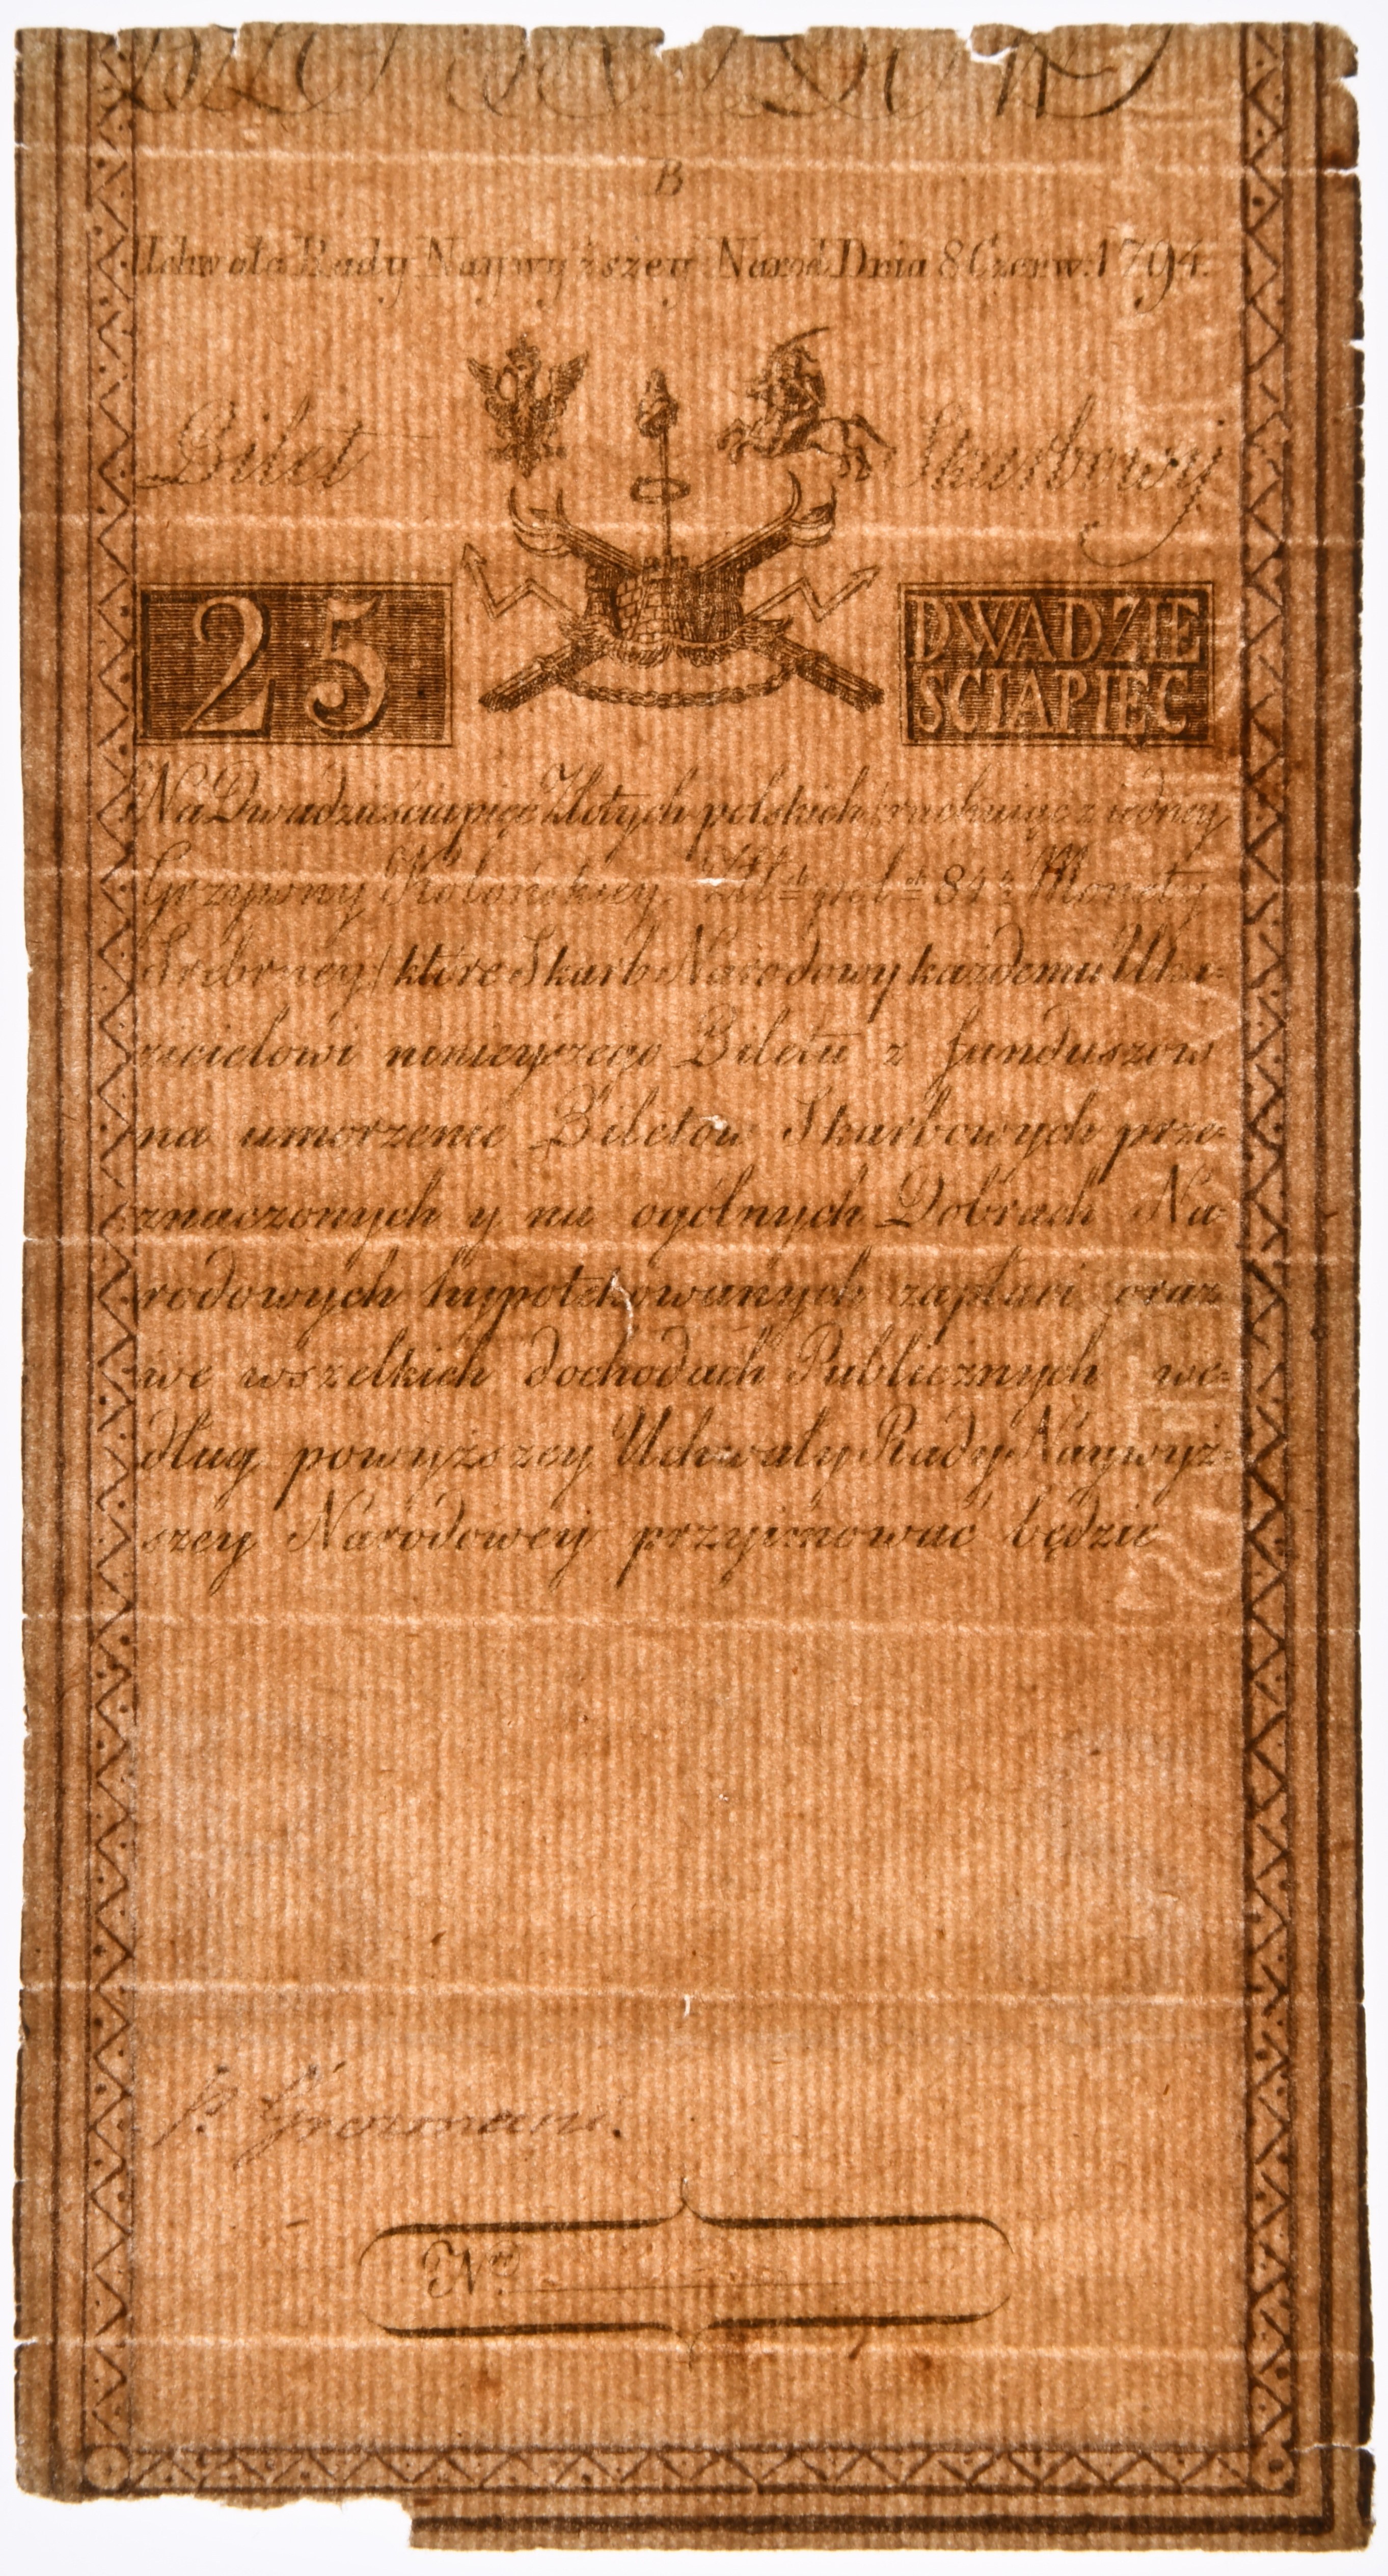 B
Uchwała Rady Naywyższey Narod. Dnia 8 Czerw. 1794.
Bilet Skarbowy
25
DWADZIE
SCIAPIĘC
Na Dwadzieściapięć Złotych polskich (rachuiąc z iedney
Grzywny Kolońskiey 84 Monety
Srebrney) które Skarb Narodowy każdemu Uka-
zicielowi ninieyszego Biletu z funduszów
na umorzenie Biletów Skarbowych prze-
znaczonych y na ogólnych Dobrach Na-
rodowych hypotekowanych zapłaci oraz
we wszelkich dochodach Publicznych we-
dług powyższey Uchwały Rady Naywyż-
szey Narodowey przyimować będzie
Nro